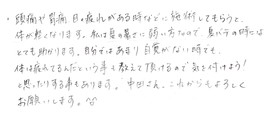 ・頭痛や胃痛、目の疲れがある時などに施術してもらうと、
体が軽くなります。私は夏の暑さに弱い方なので、夏バテの時には
とても助かります。自分ではあまり自覚がない時でも、
体は疲れてるんだという事も教えて頂けるので気を付けよう!
と思ったりする事もあります。田さん、これからもよろしく
お願いします。